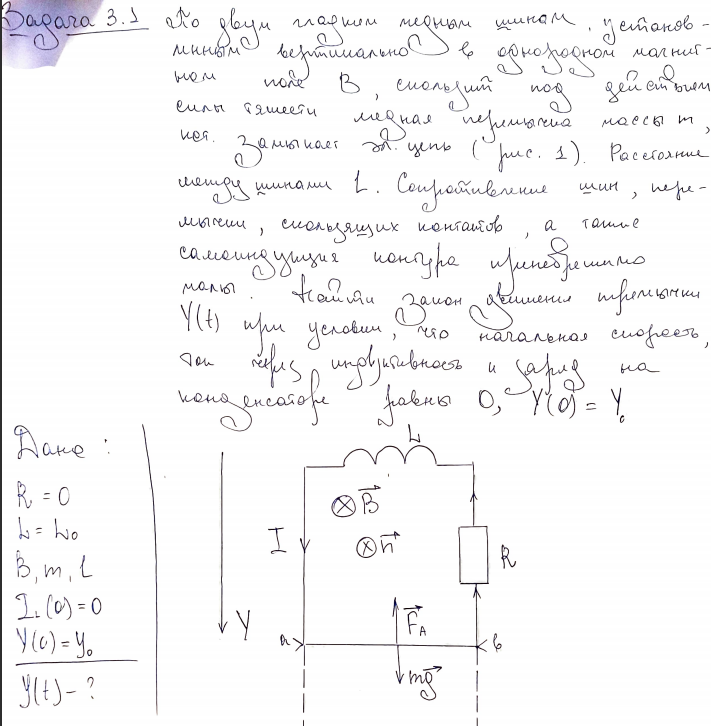 Задача 3.1 По двум гладким медным шинам, установ-
ленным вертикально в однородном магнит-
ном поле B, скользит под действием
силы тяжести медная перемычка массы m,
кот. Замыкает эл. цепь (рис. 1). Расстояние
между шинами l. Сопротивление шин, пере-
мычки, скользящих контактов, а также
самоиндукция контура пренебрежимо
малы. Найти закон движения перемычки
Y(t) при условии, что начальная скорость,
ток через индуктивность и заряд на
конденсаторе равны 0, Y(0) = Y₀
Дано:
R = 0
L = L₀
B, m, l
I_L(0) = 0
Y(0) = y₀
y(t) - ?
Y
L
⊗ B⃗
⊗ n⃗
I
R
F⃗_A
a
b
mg⃗